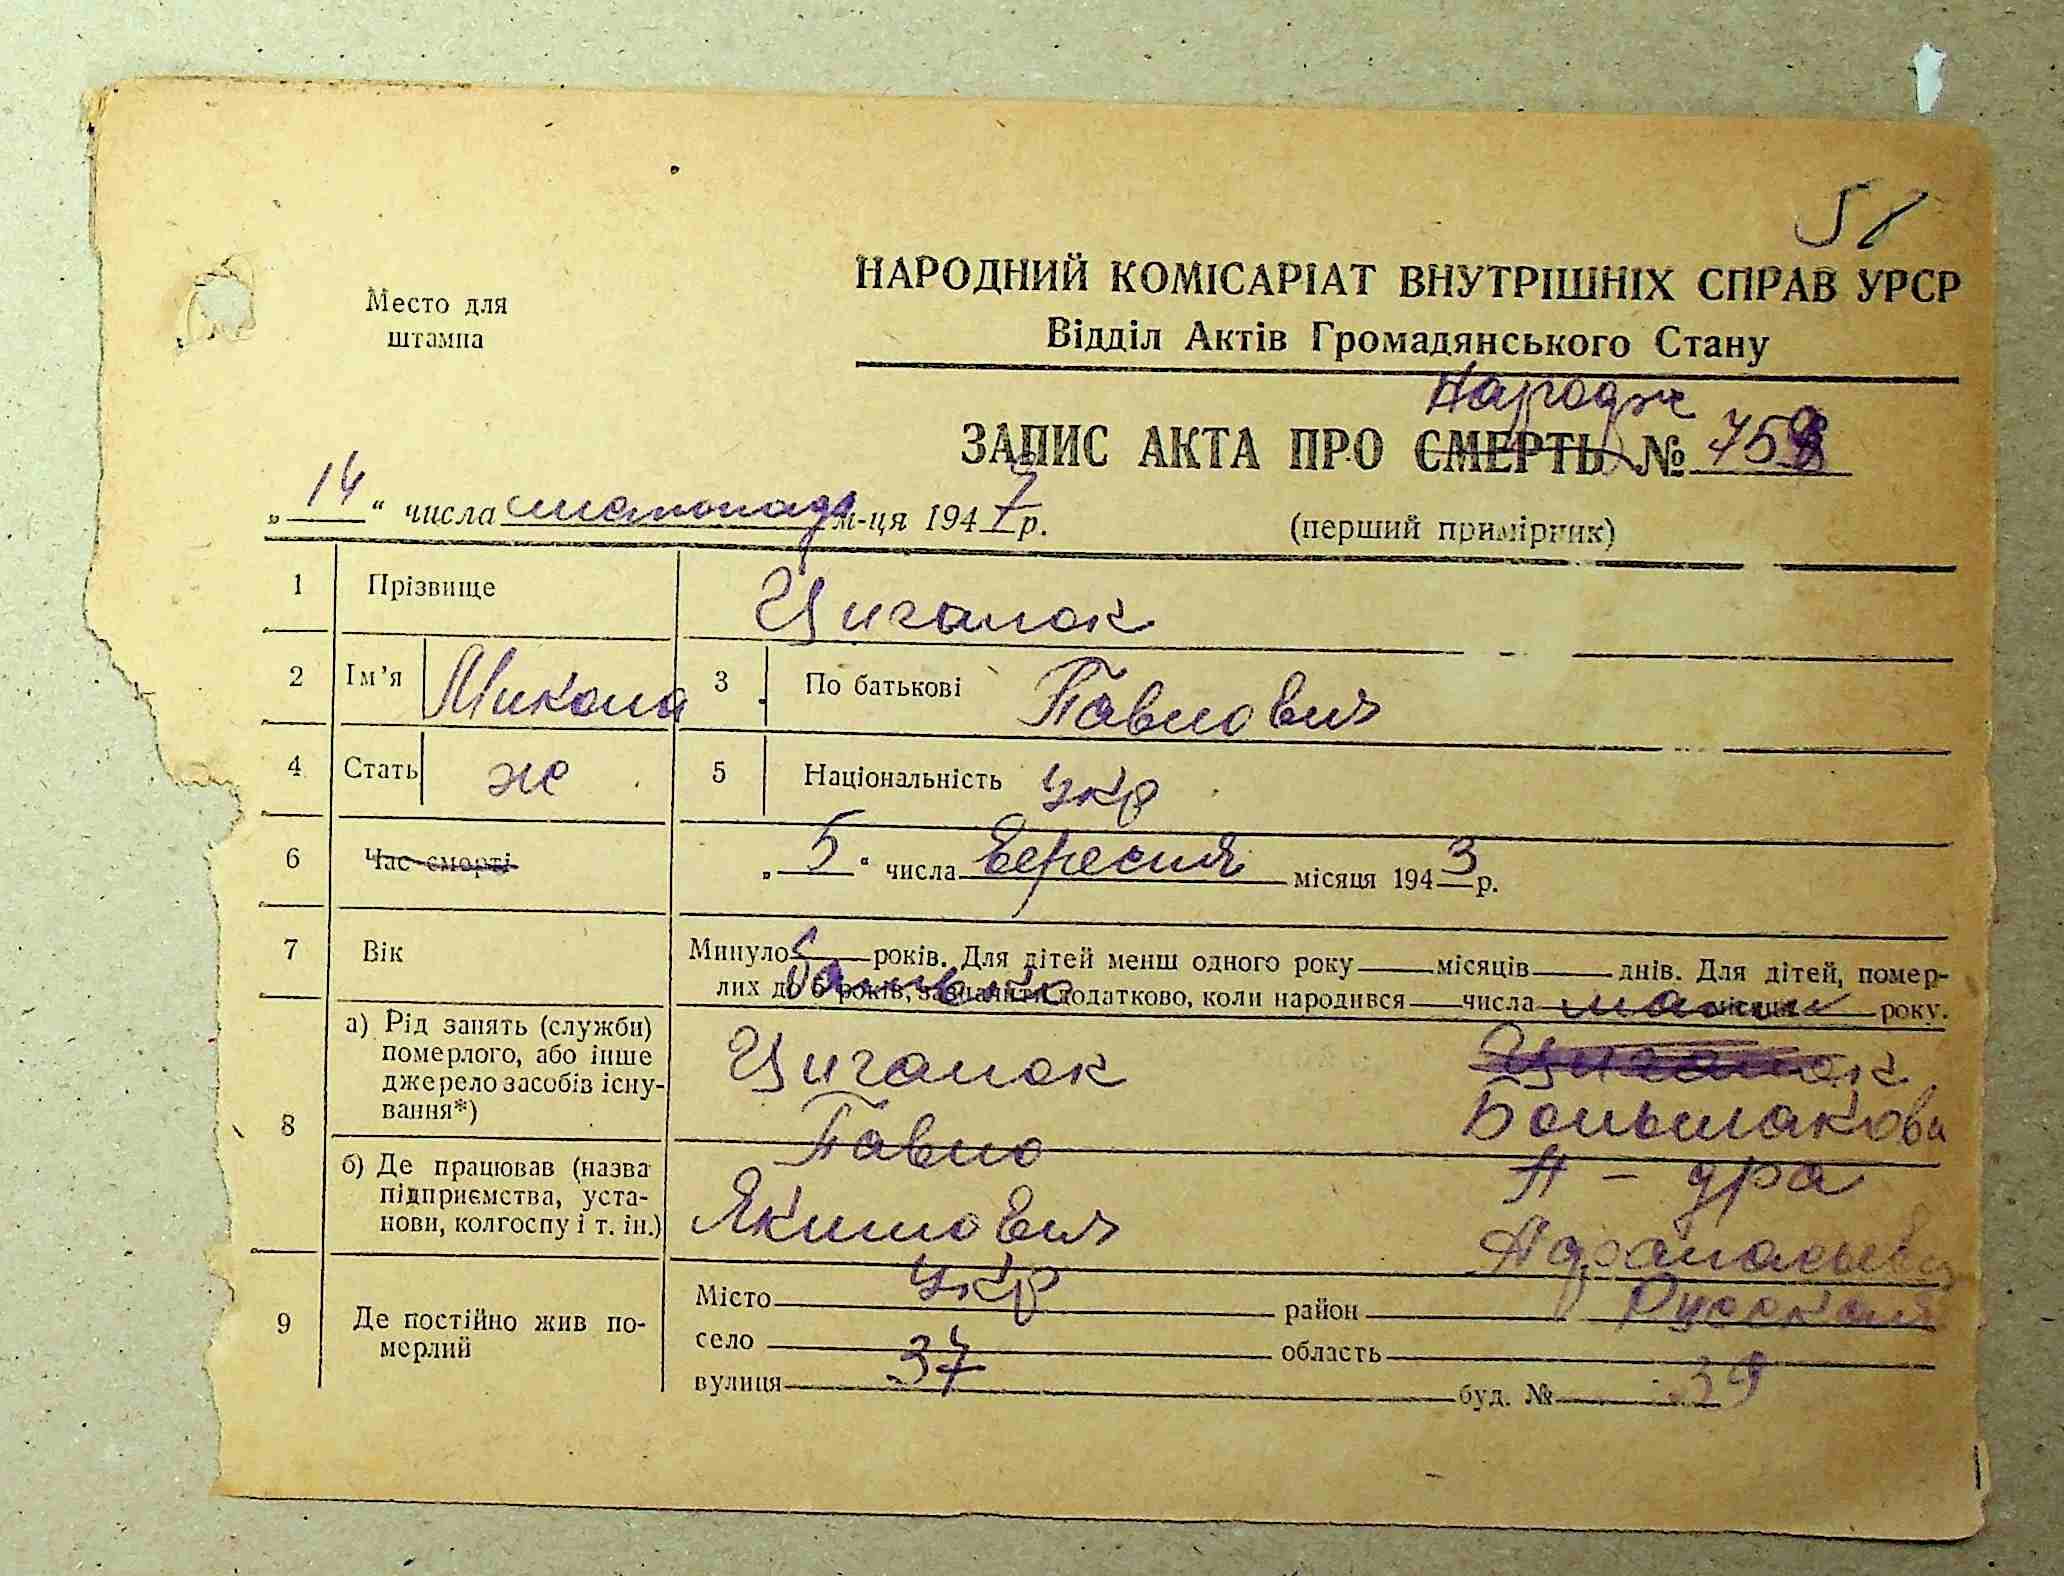 58
Место для
штампа
НАРОДНИЙ КОМІСАРІАТ ВНУТРІШНІХ СПРАВ УРСР
Відділ Актів Громадянського Стану
Народж
ЗАПИС АКТА ПРО СМЕРТЬ № 759
„ 14 “ числа листопада м-ця 1947 р.
(перший примірник)
1 Прізвище Циганок
2 Ім’я Микола 3 По батькові Павлович
4 Стать ж 5 Національність укр
6 Час смерті „ 5 “ числа Вересня місяця 1943 р.
7 Вік Минуло років. Для дітей менш одного року місяців днів. Для дітей, помер-
лих до 6 років, зазначити додатково, коли народився числа місяця року.
батько мати
8 а) Рід занять (служби)
померлого, або інше
джерело засобів існу-
вання*)
Циганок Циганок
Павло Большакова
б) Де працював (назва
підприємства, уста-
нови, колгоспу і т. ін.)
А-дра
Якимович
9 Де постійно жив по-
мерлий
Місто укр район Русская
село область
37 39
вулиця буд. №